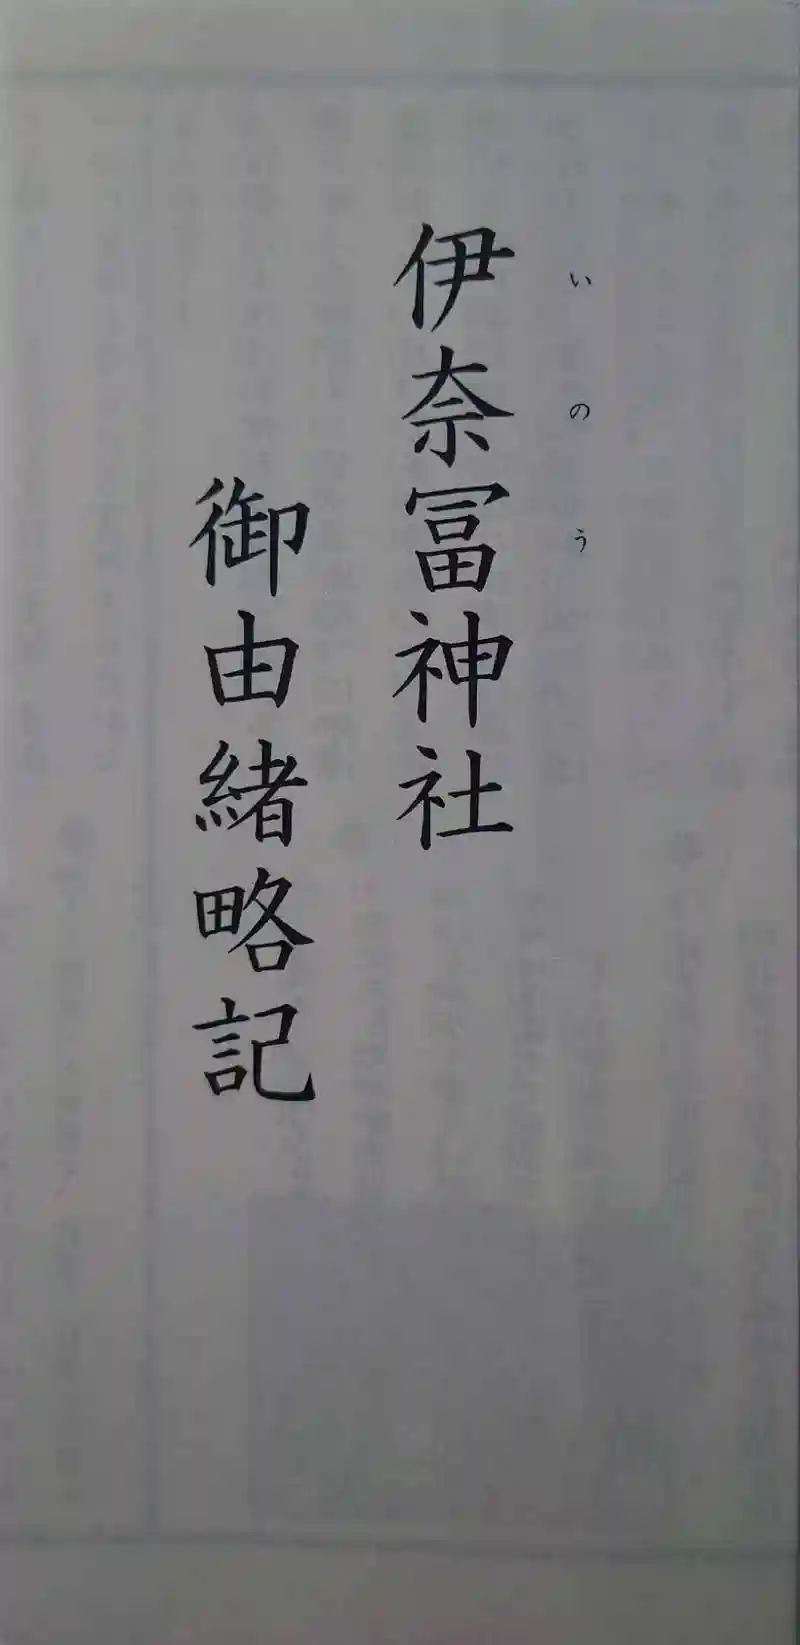 いのう
伊奈冨神社
御由緒略記